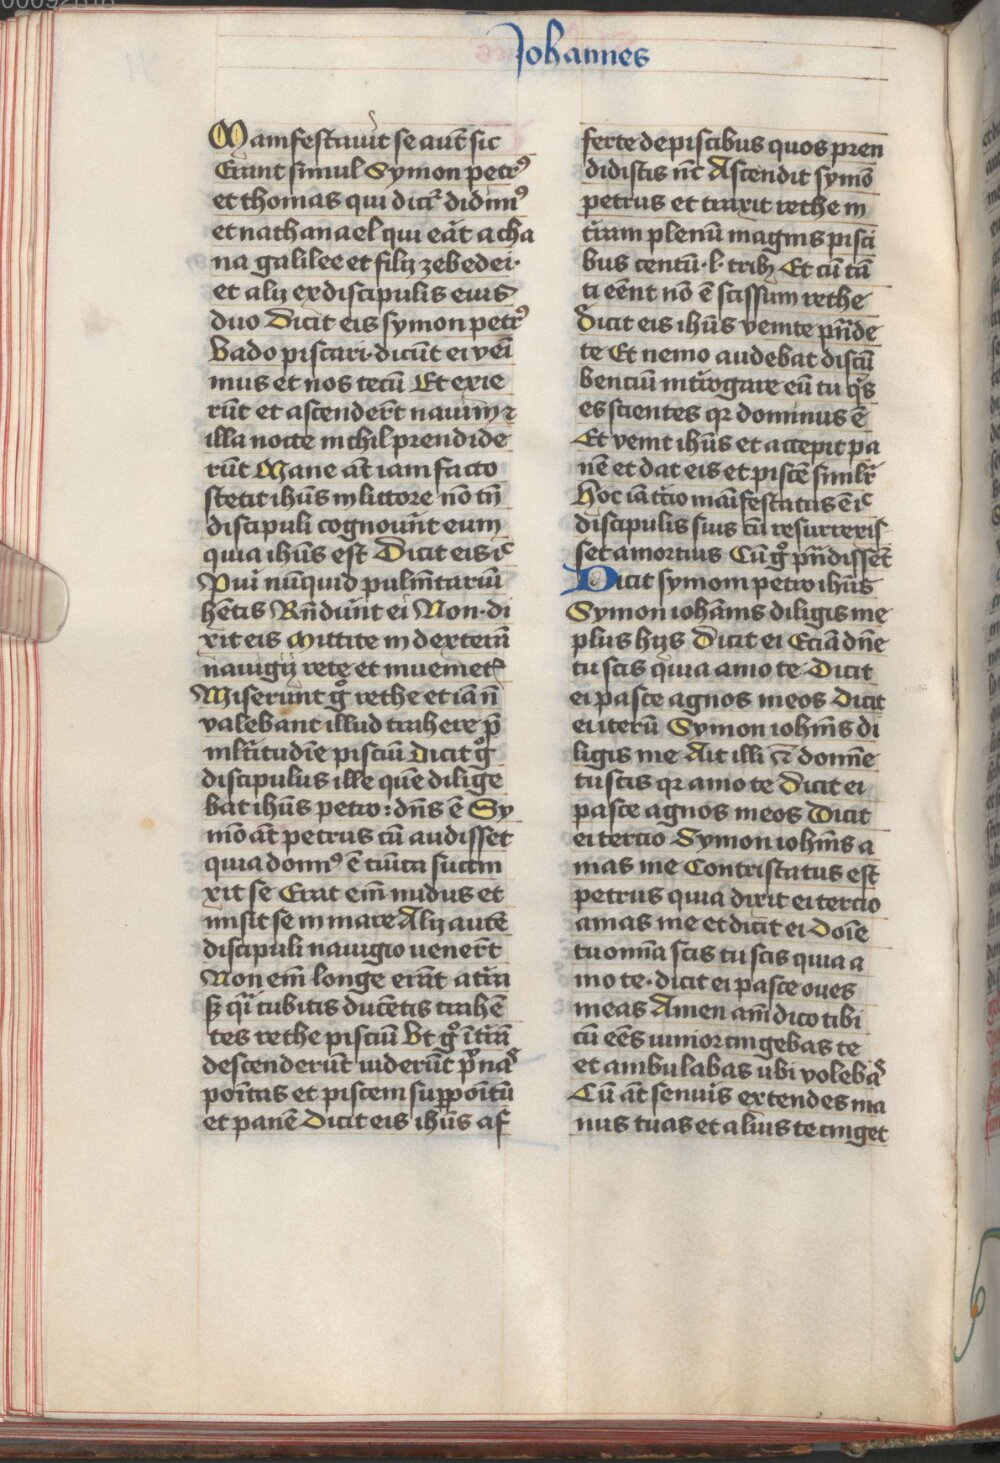 00092818
Johannes
Manifestauit se aut̄ sic
Erant simul Symon petrꝰ
et thomas qui dicit᷑ didimꝰ
et nathanael qui eāt a cha
na galilee et filij zebedei·
et alij ex discipulis eius
duo Dicit eis symon petrꝰ
Vado piscari· dicūt ei veī
mus et nos tecū Et exie
rūt et ascenderūt nauim ⁊
illa nocte nichil prendide
rūt Mane aūt iam facto
stetit ihūs in littore nō tn̄
discipuli cognouūt eum
quia ihūs est Dicit eis ic̄
Pūi nūquid pulmētariū
hētis Rn̄dūnt ei Non· di
xit eis Mittite in dexterā
nauigij rete et inuemet᷑
Miserunt gͦ rethe et iā n̄
valebant illud trahere p̄
ml̄titudīe pisciū Dicit gͦ
discipulus ille quē dilige
bat ihūs petro: dn̄s ē Sy
mō aūt petrus cū audisset
quia domnꝰ ē tūica succin
xit se Erat em̄ nudus et
misit se in mare Alij autē
discipuli nauigio uenerūt
Non em̄ longe erāt a tr̄a
sꝫ qͣi cubitis ducētis trahē
tes rethe pisciū Vt gͦ ī tr̄ā
descenderūt uiderūt pͥnaˢ
poītas et piscem suppoītū
et panē Dicit eis ihūs af
ferte de piscibus quos pren
didistis nūc Ascendit symō
petrus et traxit rethe in
tr̄am plenū magnis pisci
bus centū·l·tribꝫ Et cū tā
ti eēnt nō ē scissum rethe
Dicit eis ihūs venite prn̄de
te Et nemo audebat discū
benciū int̄rogare eū tu qͥs
es scientes qꝛ dominus ē
Et venit ihūs et accepit pa
nē et dat eis et piscē simil᷑r
Hoc iā tcͥo maīfestatus ē ic̄
discipulis suis cū resurrexis-
set a mortuis Cū gͦ prn̄dissēt
Dicit symoni petro ihūs
Symon iohānis diligis me
plus hijs Dicit ei Eciā dn̄e
tu scis quia amo te Dicit
ei pasce agnos meos Dicit
ei iterū Symon ioh̄nis di
ligis me Ait illi Eciā domine
tu scis qꝛ amo te Dicit ei
pasce agnos meos Dicit
ei tercio Symon ioh̄nis a
mas me Contristatus est
petrus quia dixit ei tercio
amas me et dicit ei Doīe
tu omnia scis tu scis quia a
mo te· dicit ei pasce oues
meas Amen am̄ dico tibi
cū eēs iunior cingebas te
et ambulabas ubi volebaˢ
Cū aūt senuīs extendes ma
nus tuas et alius te cinget